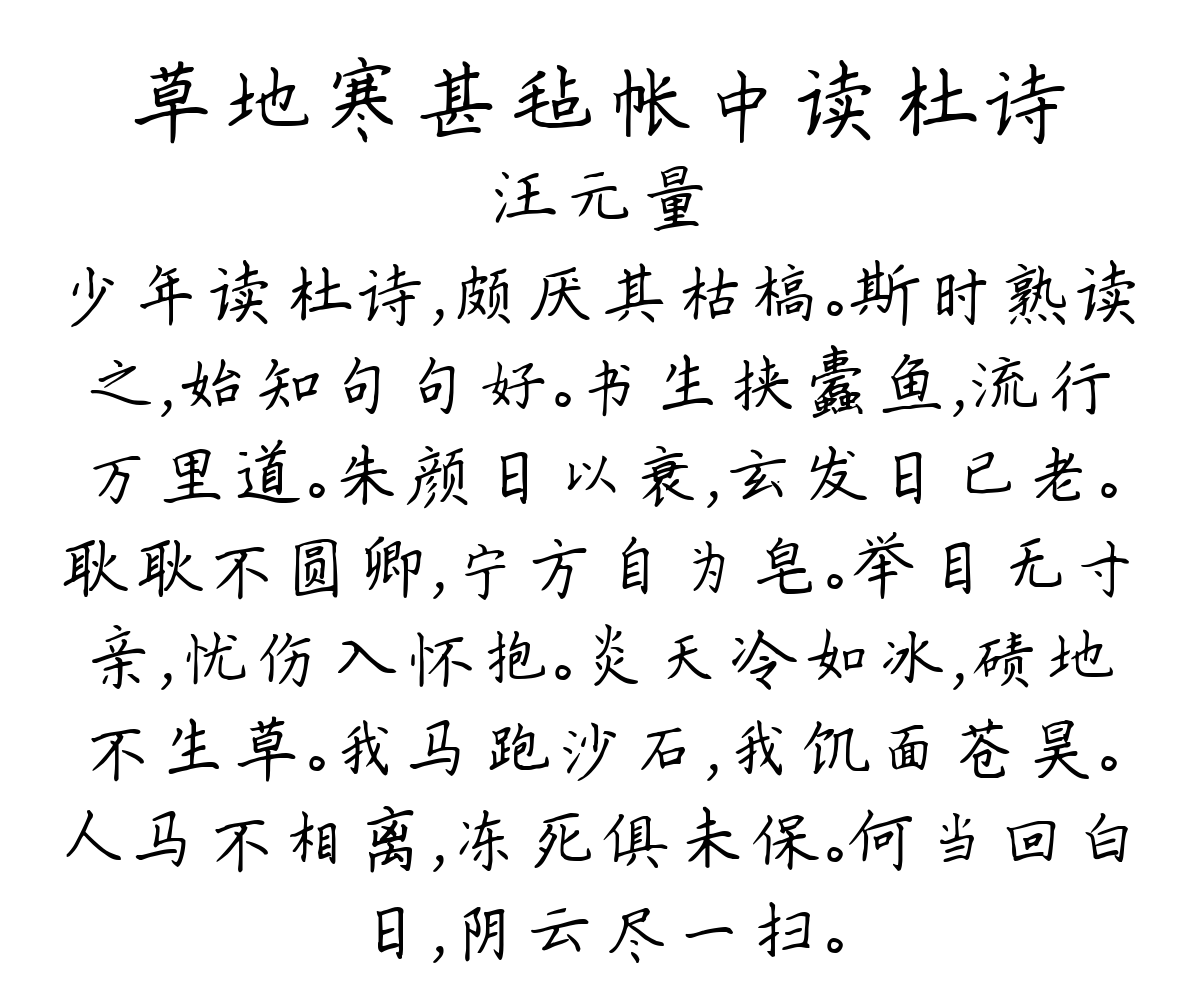 草地寒甚毡帐中读杜诗
汪元量
少年读杜诗,颇厌其枯槁。斯时熟读
之,始知句句好。书生挟蠹鱼,流行
万里道。朱颜日以衰,玄发日已老。
耿耿不圆卿,宁方自为皂。举目无寸
亲,忧伤入怀抱。炎天冷如冰,碛地
不生草。我马跑沙石,我饥面苍昊。
人马不相离,冻死俱未保。何当回白
日,阴云尽一扫。